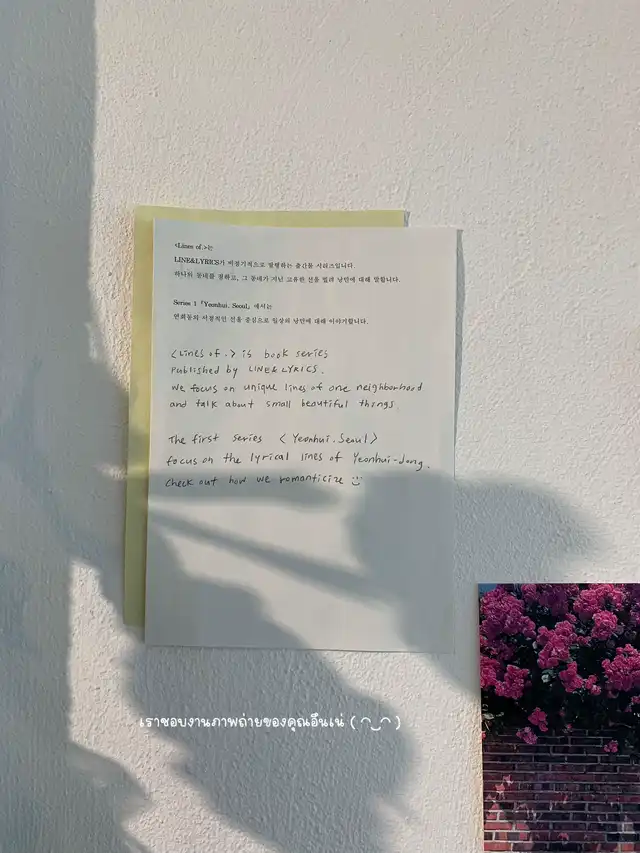 <Lines of.>는
LINE&LYRICS가 비정기적으로 발행하는 출간물 시리즈입니다.
하나의 동네를 정하고, 그 동네가 지닌 고유한 선을 빌려 낭만에 대해 말합니다.
Series 1 「Yeonhui, Seoul」에서는
연희동의 서정적인 선을 중심으로 일상의 낭만에 대해 이야기합니다.
<Lines of.> is book series
Published by LINE&LYRICS.
We focus on unique lines of one neighborhood
and talk about small beautiful things.
The first series <Yeonhui. Seoul>
focus on the lyrical lines of Yeonhui-dong.
check out how we romanticize :)
เราชอบงานภาพถ่ายของคุณอึนเน่ (◠‿◠)